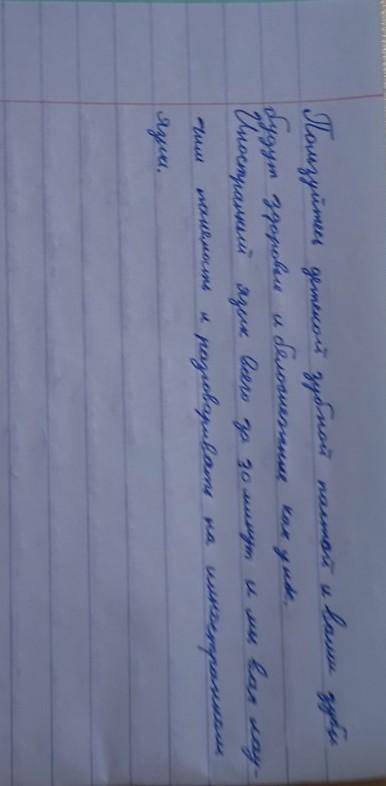 Пользуйтесь детской зубной пастой и ваши зубы
будут здоровы и белоснежные как у
Иностранный язык всего за 30 минут и мы вас нау-
чим понимать и разговаривать на иностранном
языи.